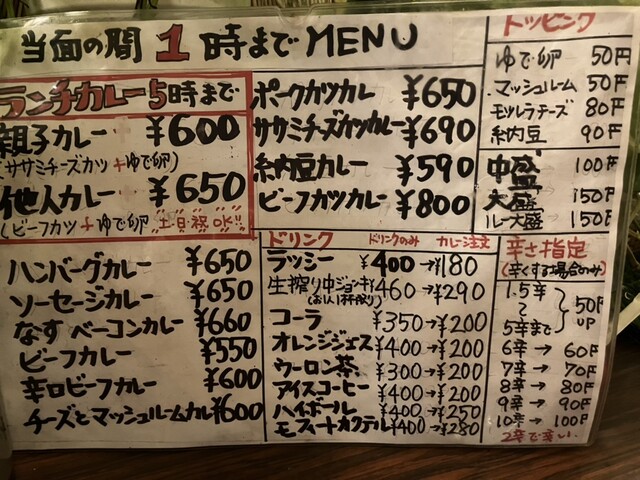 当面の間 1 時まで MENU
ランチカレー 5時まで
親子カレー ¥600
(ササミチーズカツ+ゆで卵)
他人カレー ¥650
(ビーフカツ+ゆで卵) 土・日・祝 OK!!
ポークカツカレー ¥650
ササミチーズカツカレー ¥690
納内豆カレー ¥590
ビーフカツカレー ¥800
トッピング
ゆで卵 50円
マッシュルーム 50円
モッツァラチーズ 80円
納内豆 90円
中盛 100円
大盛 150円
ルー大盛 150円
ハンバーグカレー ¥650
ソーセージカレー ¥650
なすベーコンカレー ¥660
ビーフカレー ¥550
辛口ビーフカレー ¥600
チーズとマッシュルームカレー ¥600
ドリンク ドリンクのみ カレー注文
ラッシー ¥400→¥180
生搾り中ジョッキ ¥460→¥290
(お1人1杯限り)
コーラ ¥350→¥200
オレンジジュース ¥400→¥200
ウーロン茶 ¥300→¥200
アイスコーヒー ¥400→¥200
ハイボール ¥400→¥250
モヒートカクテル ¥400→¥280
辛さ指定
(辛くする場合のみ)
1.5辛
〜
5辛まで
50円
UP
6辛→60円
7辛→70円
8辛→80円
9辛→90円
10辛→100円
2辛で辛い